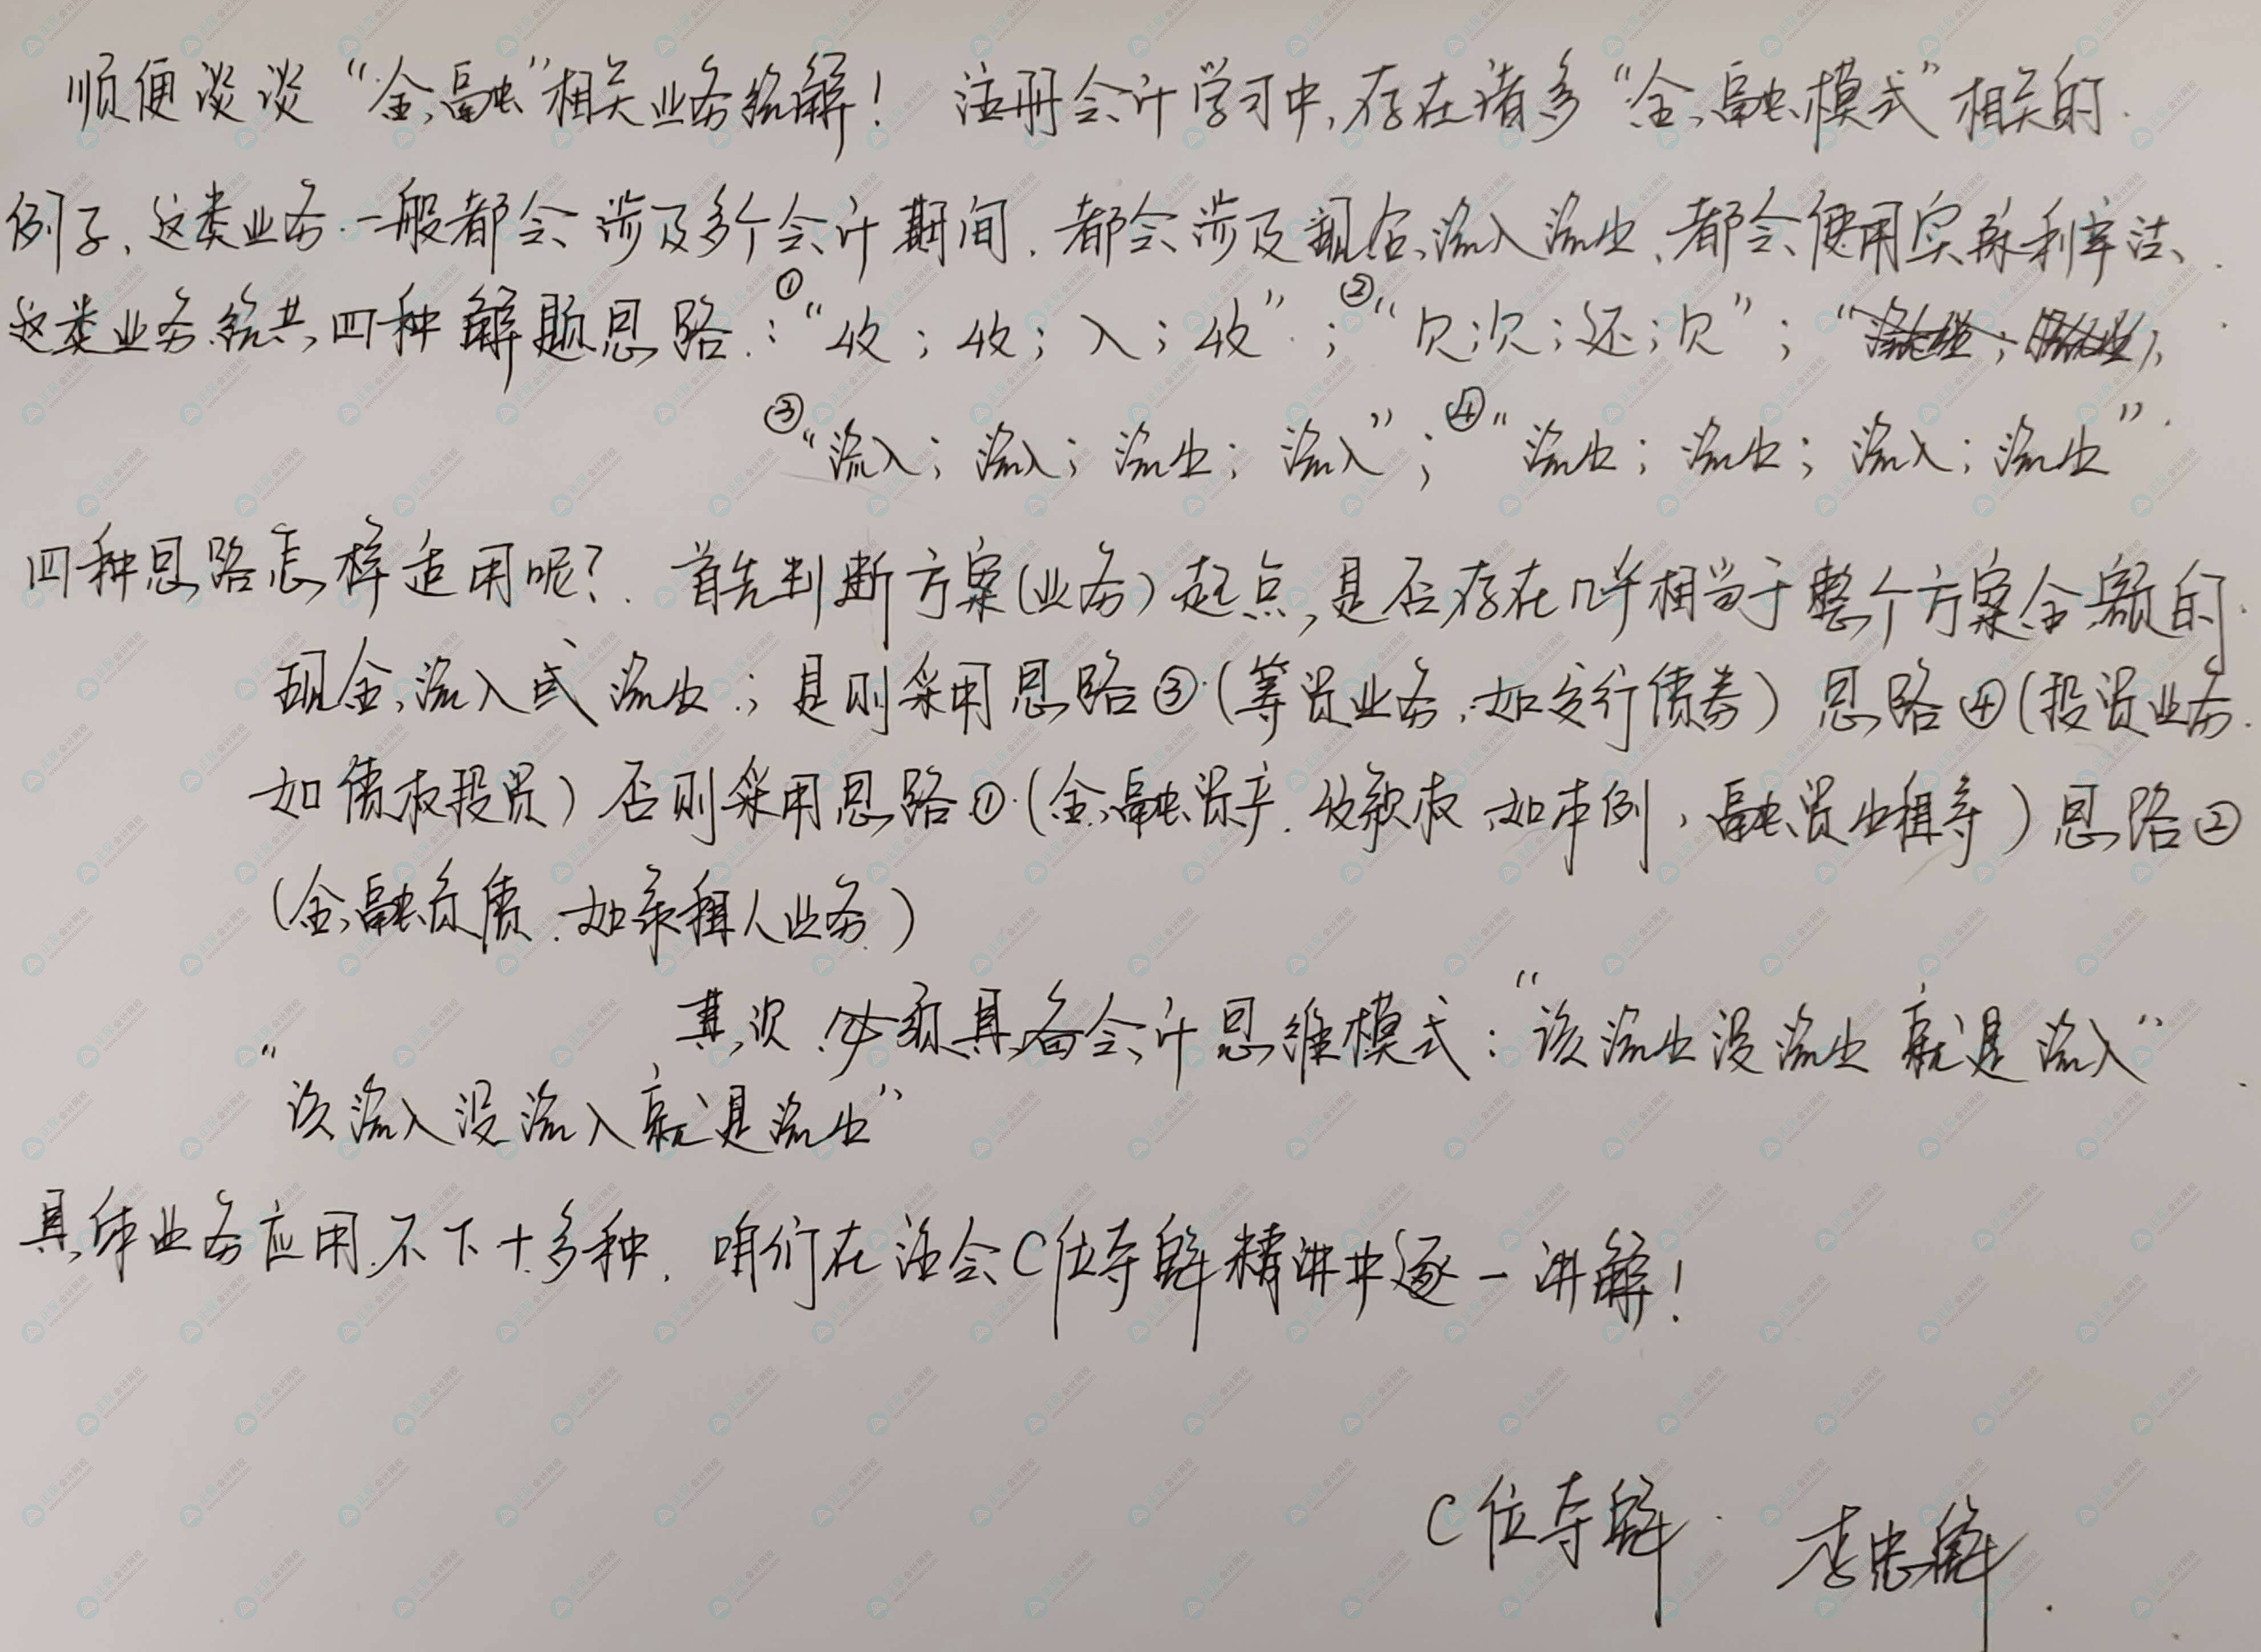 顺便谈谈“金融”相关业务统解！ 注册会计学习中，存在诸多“金融模式”相关的
例子，这类业务一般都会涉及多个会计期间，都会涉及现金流入流出，都会使用实际利率法、
① ②
这类业务统共四种解题思路：“收；收；入；收”；“欠；欠；还；欠”；“
③“流入；流入；流出；流入”；④“流出；流出；流入；流出”
四种思路怎样适用呢？首先判断方案（业务）起点，是否存在几乎相当于整个方案金额的
现金流入或流出；是则采用思路③（筹资业务，如发行债券）思路④（投资业务
如债权投资）否则采用思路①（金融资产、收款权，如本例，融资出租等）思路②
（金融负债，如承租人业务）
其次必须具备会计思维模式：“该流出没流出就是流入”
“该流入没流入就是流出”
具体业务应用不下十多种，咱们在注会C位夺魁精讲中逐一讲解！
C位夺魁 李忠魁
正保会计网校
www.chinaacc.com